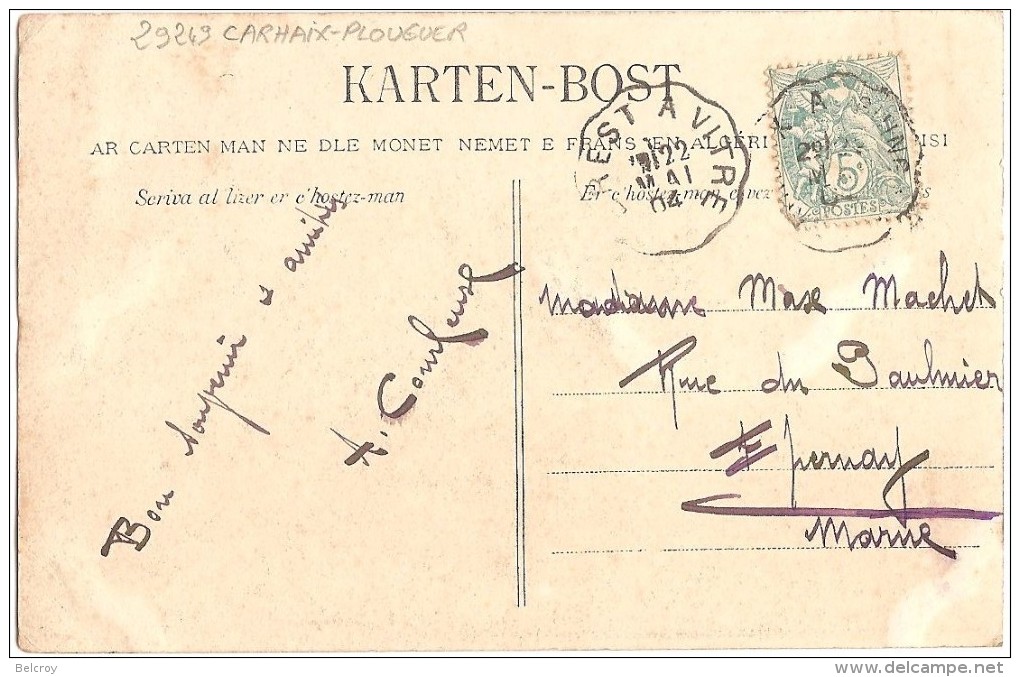 29249 CARHAIX-PLOUGUER
KARTEN-BOST
AR CARTEN MAN NE DLE MONET NEMET E FRANS EN ALGERI ISI
Scriva al lizer er c'hostez-man
Er c'hostez-man evez
REST A VITRE
22
MAI
04
5
POSTES
Bon souvenir & amitiés
A.
Madame Max Machet
Rue du Paulmier
Epernay
Marne
Belcroy
www.delcampe.net